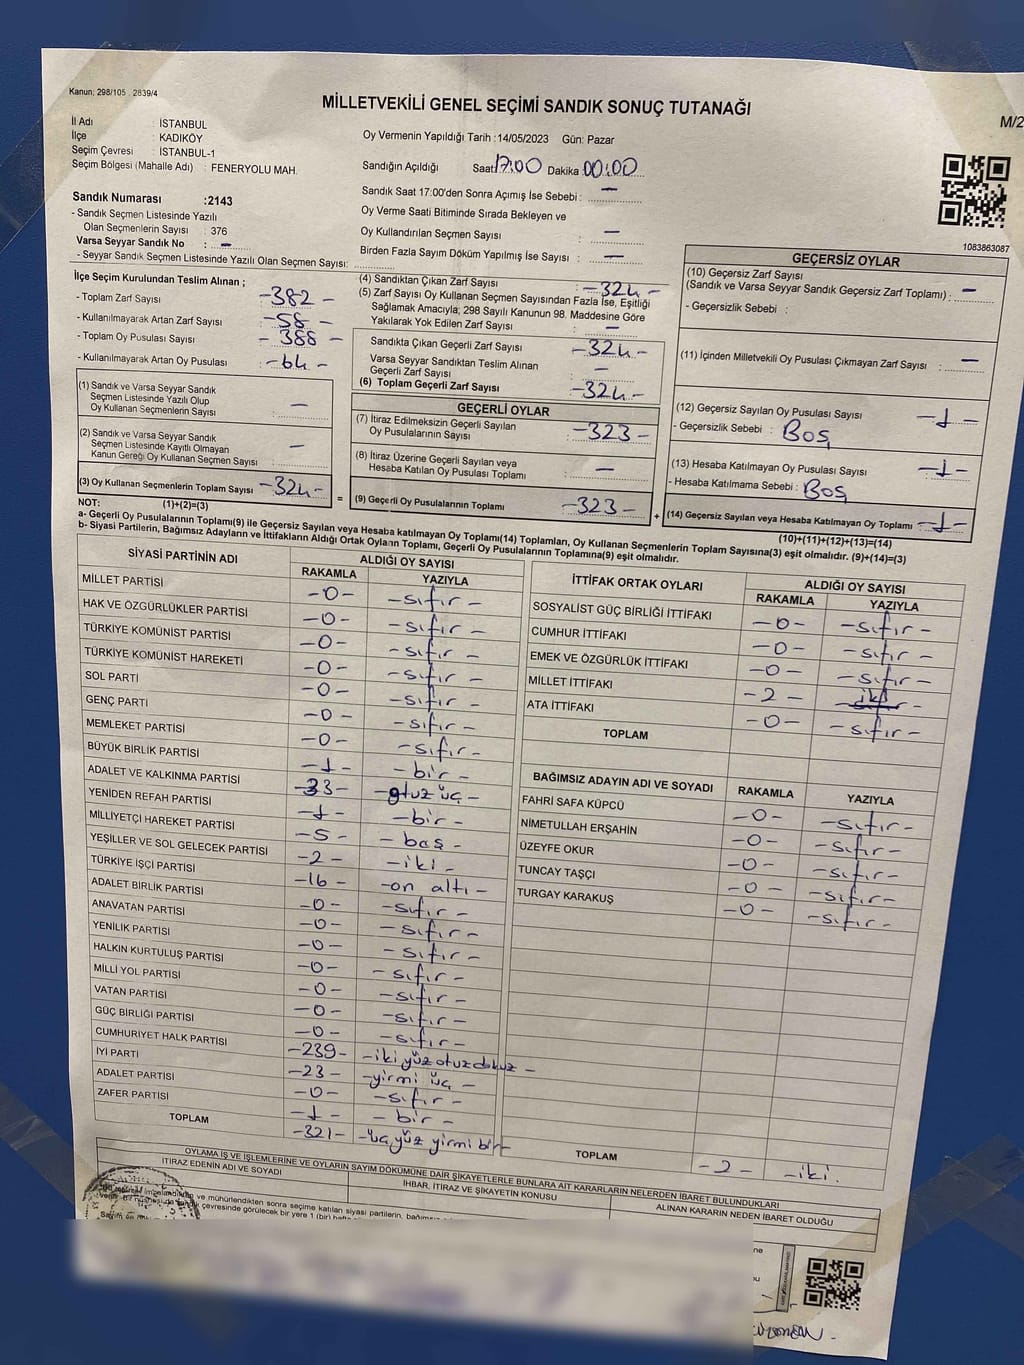 Kanun; 298/105 . 2839/4
MİLLETVEKİLİ GENEL SEÇİMİ SANDIK SONUÇ TUTANAĞI
M/2
İl Adı : İSTANBUL
İlçe : KADIKÖY
Seçim Çevresi : İSTANBUL-1
Seçim Bölgesi (Mahalle Adı) : FENERYOLU MAH.
Oy Vermenin Yapıldığı Tarih : 14/05/2023 Gün: Pazar
Sandığın Açıldığı Saat 17:00 Dakika 00:00
Sandık Saat 17:00'den Sonra Açımış İse Sebebi : —
Oy Verme Saati Bitiminde Sırada Bekleyen ve
Oy Kullandırılan Seçmen Sayısı : —
Birden Fazla Sayım Döküm Yapılmış İse Sayısı : —
Sandık Numarası :2143
- Sandık Seçmen Listesinde Yazılı
Olan Seçmenlerin Sayısı : 376
Varsa Seyyar Sandık No : —
- Seyyar Sandık Seçmen Listesinde Yazılı Olan Seçmen Sayısı:
1083863087
İlçe Seçim Kurulundan Teslim Alınan ;
- Toplam Zarf Sayısı -382-
- Kullanılmayarak Artan Zarf Sayısı -58-
- Toplam Oy Pusulası Sayısı : -388-
- Kullanılmayarak Artan Oy Pusulası : -64-
(1) Sandık ve Varsa Seyyar Sandık
Seçmen Listesinde Yazılı Olup
Oy Kullanan Seçmenlerin Sayısı : —
(2) Sandık ve Varsa Seyyar Sandık
Seçmen Listesinde Kayıtlı Olmayan
Kanun Gereği Oy Kullanan Seçmen Sayısı : —
(3) Oy Kullanan Seçmenlerin Toplam Sayısı -324-
(1)+(2)=(3)
(4) Sandıktan Çıkan Zarf Sayısı : -324-
(5) Zarf Sayısı Oy Kullanan Seçmen Sayısından Fazla İse, Eşitliği
Sağlamak Amacıyla; 298 Sayılı Kanunun 98. Maddesine Göre
Yakılarak Yok Edilen Zarf Sayısı : —
Sandıkta Çıkan Geçerli Zarf Sayısı : -324-
Varsa Seyyar Sandıktan Teslim Alınan
Geçerli Zarf Sayısı : —
(6) Toplam Geçerli Zarf Sayısı : -324-
GEÇERLİ OYLAR
(7) İtiraz Edilmeksizin Geçerli Sayılan
Oy Pusulalarının Sayısı : -323-
(8) İtiraz Üzerine Geçerli Sayılan veya
Hesaba Katılan Oy Pusulası Toplamı : —
= (9) Geçerli Oy Pusulalarının Toplamı : -323-
GEÇERSİZ OYLAR
(10) Geçersiz Zarf Sayısı
(Sandık ve Varsa Seyyar Sandık Geçersiz Zarf Toplamı) : —
- Geçersizlik Sebebi :
(11) İçinden Milletvekili Oy Pusulası Çıkmayan Zarf Sayısı : —
(12) Geçersiz Sayılan Oy Pusulası Sayısı : -1-
- Geçersizlik Sebebi : Boş
(13) Hesaba Katılmayan Oy Pusulası Sayısı : -1-
- Hesaba Katılmama Sebebi : Boş
+ (14) Geçersiz Sayılan veya Hesaba Katılmayan Oy Toplamı : -1-
(10)+(11)+(12)+(13)=(14)
NOT:
a- Geçerli Oy Pusulalarının Toplamı(9) ile Geçersiz Sayılan veya Hesaba katılmayan Oy Toplamı(14) Toplamları, Oy Kullanan Seçmenlerin Toplam Sayısına(3) eşit olmalıdır. (9)+(14)=(3)
b- Siyasi Partilerin, Bağımsız Adayların ve İttifakların Aldığı Ortak Oyların Toplamı, Geçerli Oy Pusulalarının Toplamına(9) eşit olmalıdır.
SİYASİ PARTİNİN ADI ALDIĞI OY SAYISI
RAKAMLA YAZIYLA
MİLLET PARTİSİ -0- -sıfır-
HAK VE ÖZGÜRLÜKLER PARTİSİ -0- -sıfır-
TÜRKİYE KOMÜNİST PARTİSİ -0- -sıfır-
TÜRKİYE KOMÜNİST HAREKETİ -0- -sıfır-
SOL PARTİ -0- -sıfır-
GENÇ PARTİ -0- -sıfır-
MEMLEKET PARTİSİ -0- -sıfır-
BÜYÜK BİRLİK PARTİSİ -1- -bir-
ADALET VE KALKINMA PARTİSİ -33- -otuz üç-
YENİDEN REFAH PARTİSİ -1- -bir-
MİLLİYETÇİ HAREKET PARTİSİ -5- -beş-
YEŞİLLER VE SOL GELECEK PARTİSİ -2- -iki-
TÜRKİYE İŞÇİ PARTİSİ -16- -on altı-
ADALET BİRLİK PARTİSİ -0- -sıfır-
ANAVATAN PARTİSİ -0- -sıfır-
YENİLİK PARTİSİ -0- -sıfır-
HALKIN KURTULUŞ PARTİSİ -0- -sıfır-
MİLLİ YOL PARTİSİ -0- -sıfır-
VATAN PARTİSİ -0- -sıfır-
GÜÇ BİRLİĞİ PARTİSİ -0- -sıfır-
CUMHURİYET HALK PARTİSİ -239- -iki yüz otuz dokuz-
İYİ PARTİ -23- -yirmi üç-
ADALET PARTİSİ -0- -sıfır-
ZAFER PARTİSİ -1- -bir-
TOPLAM -321- -üç yüz yirmi bir-
İTTİFAK ORTAK OYLARI ALDIĞI OY SAYISI
RAKAMLA YAZIYLA
SOSYALİST GÜÇ BİRLİĞİ İTTİFAKI -0- -sıfır-
CUMHUR İTTİFAKI -0- -sıfır-
EMEK VE ÖZGÜRLÜK İTTİFAKI -0- -sıfır-
MİLLET İTTİFAKI -2- iki
ATA İTTİFAKI -0- -sıfır-
TOPLAM
BAĞIMSIZ ADAYIN ADI VE SOYADI RAKAMLA YAZIYLA
FAHRİ SAFA KÜPCÜ -0- -sıfır-
NİMETULLAH ERŞAHİN -0- -sıfır-
ÜZEYFE OKUR -0- -sıfır-
TUNCAY TAŞÇI -0- -sıfır-
TURGAY KARAKUŞ -0- -sıfır-
TOPLAM -2- -iki.
OYLAMA İŞ VE İŞLEMLERİNE VE OYLARIN SAYIM DÖKÜMÜNE DAİR ŞİKAYETLERLE BUNLARA AİT KARARLARIN NELERDEN İBARET BULUNDUKLARI
İTİRAZ EDENİN ADI VE SOYADI İHBAR, İTİRAZ VE ŞİKAYETİN KONUSU ALINAN KARARIN NEDEN İBARET OLDUĞU
ve mühürlendikten sonra seçime katılan siyasi partilerin,
çevresinde görülecek bir yere 1 (bir)